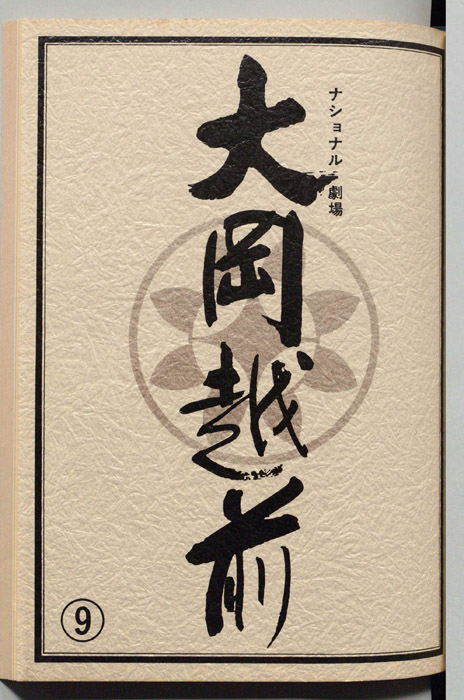 ナショナル劇場
大岡越前
⑨